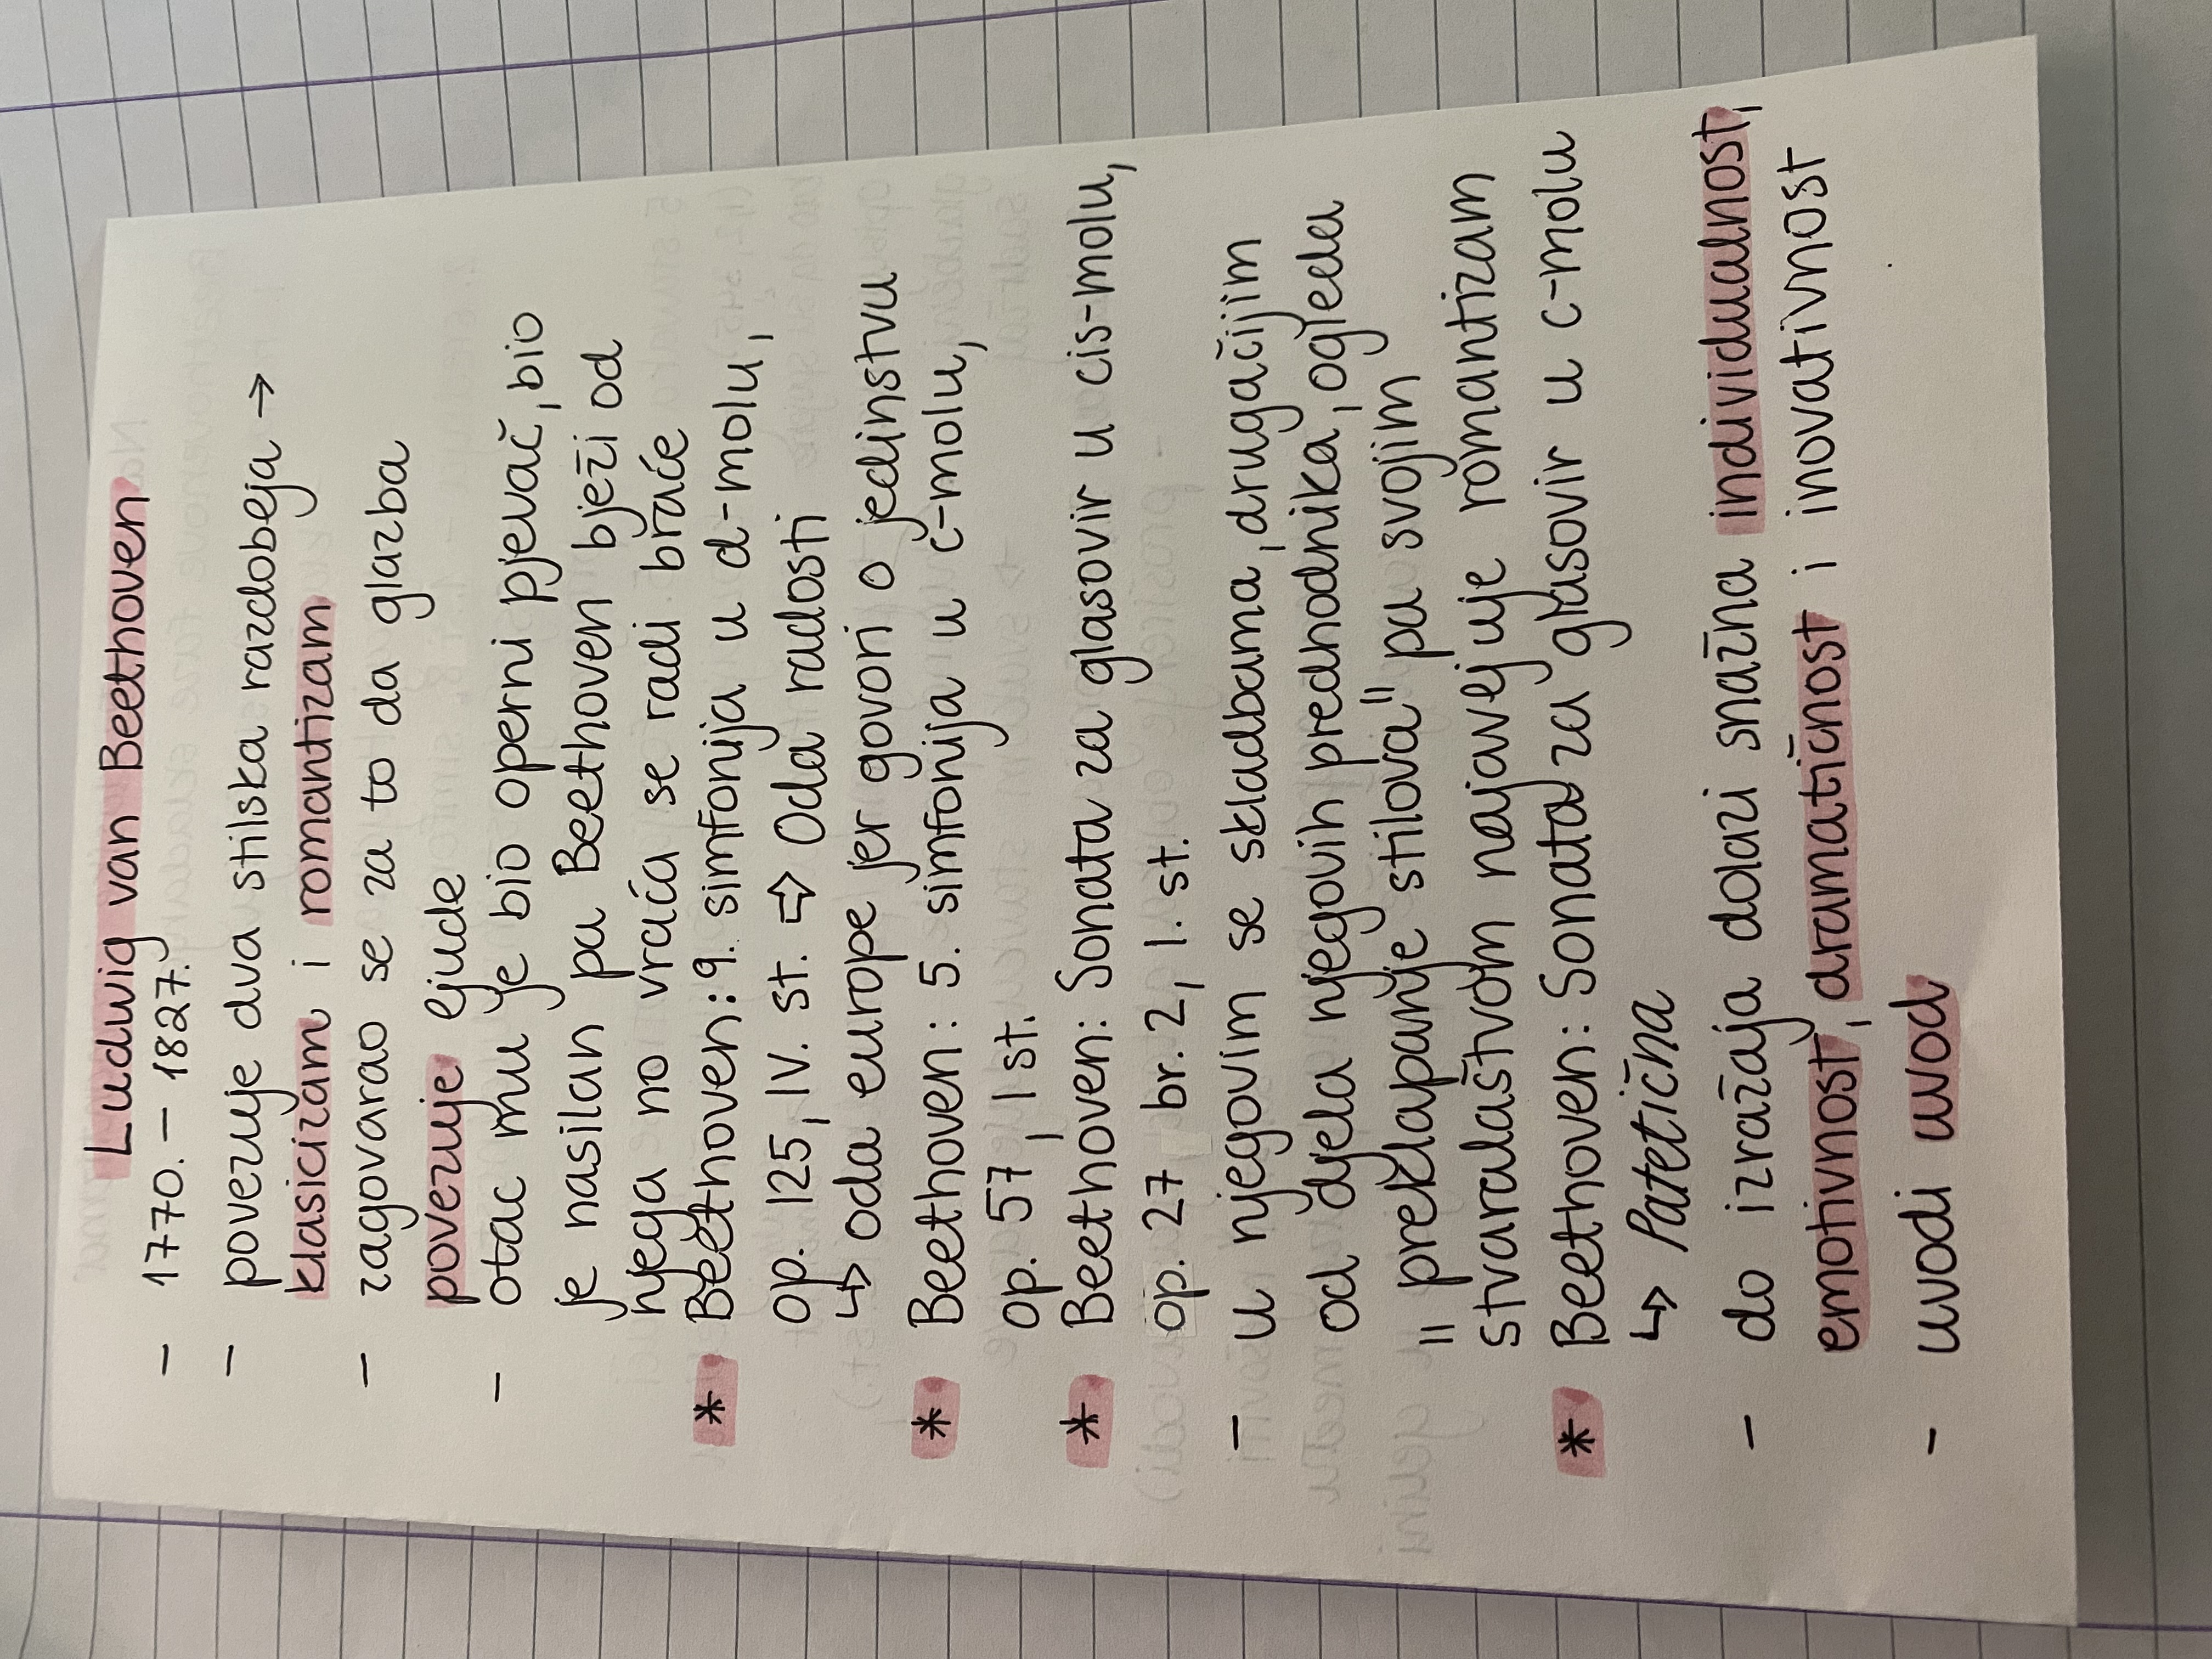 Ludwig van Beethoven
- 1770. - 1827.
- povezuje dva stilska razdoblja →
klasicizam i romantizam
- zagovarao se za to da glazba
povezuje ljude
- otac mu je bio operni pjevač, bio
je nasilan pa Beethoven bježi od
njega no vraća se radi braće
* Beethoven: 9. simfonija u d-molu,
op. 125, IV. st. ⇨ Oda radosti
↳ oda europe jer govori o jedinstvu
* Beethoven: 5. simfonija u c-molu,
op. 57, I st.
* Beethoven: Sonata za glasovir u cis-molu,
op. 27 br. 2, 1. st.
- u njegovim se skladbama, drugačijim
od djela njegovih predhodnika, ogleda
„preklapanje stilova" pa svojim
stvaralaštvom najavljuje romantizam
* Beethoven: Sonata za glasovir u c-molu
↳ Patetična
- do izražaja dolazi snažna individualnost,
emotivnost, dramatičnost i inovativnost
- uvodi uvod